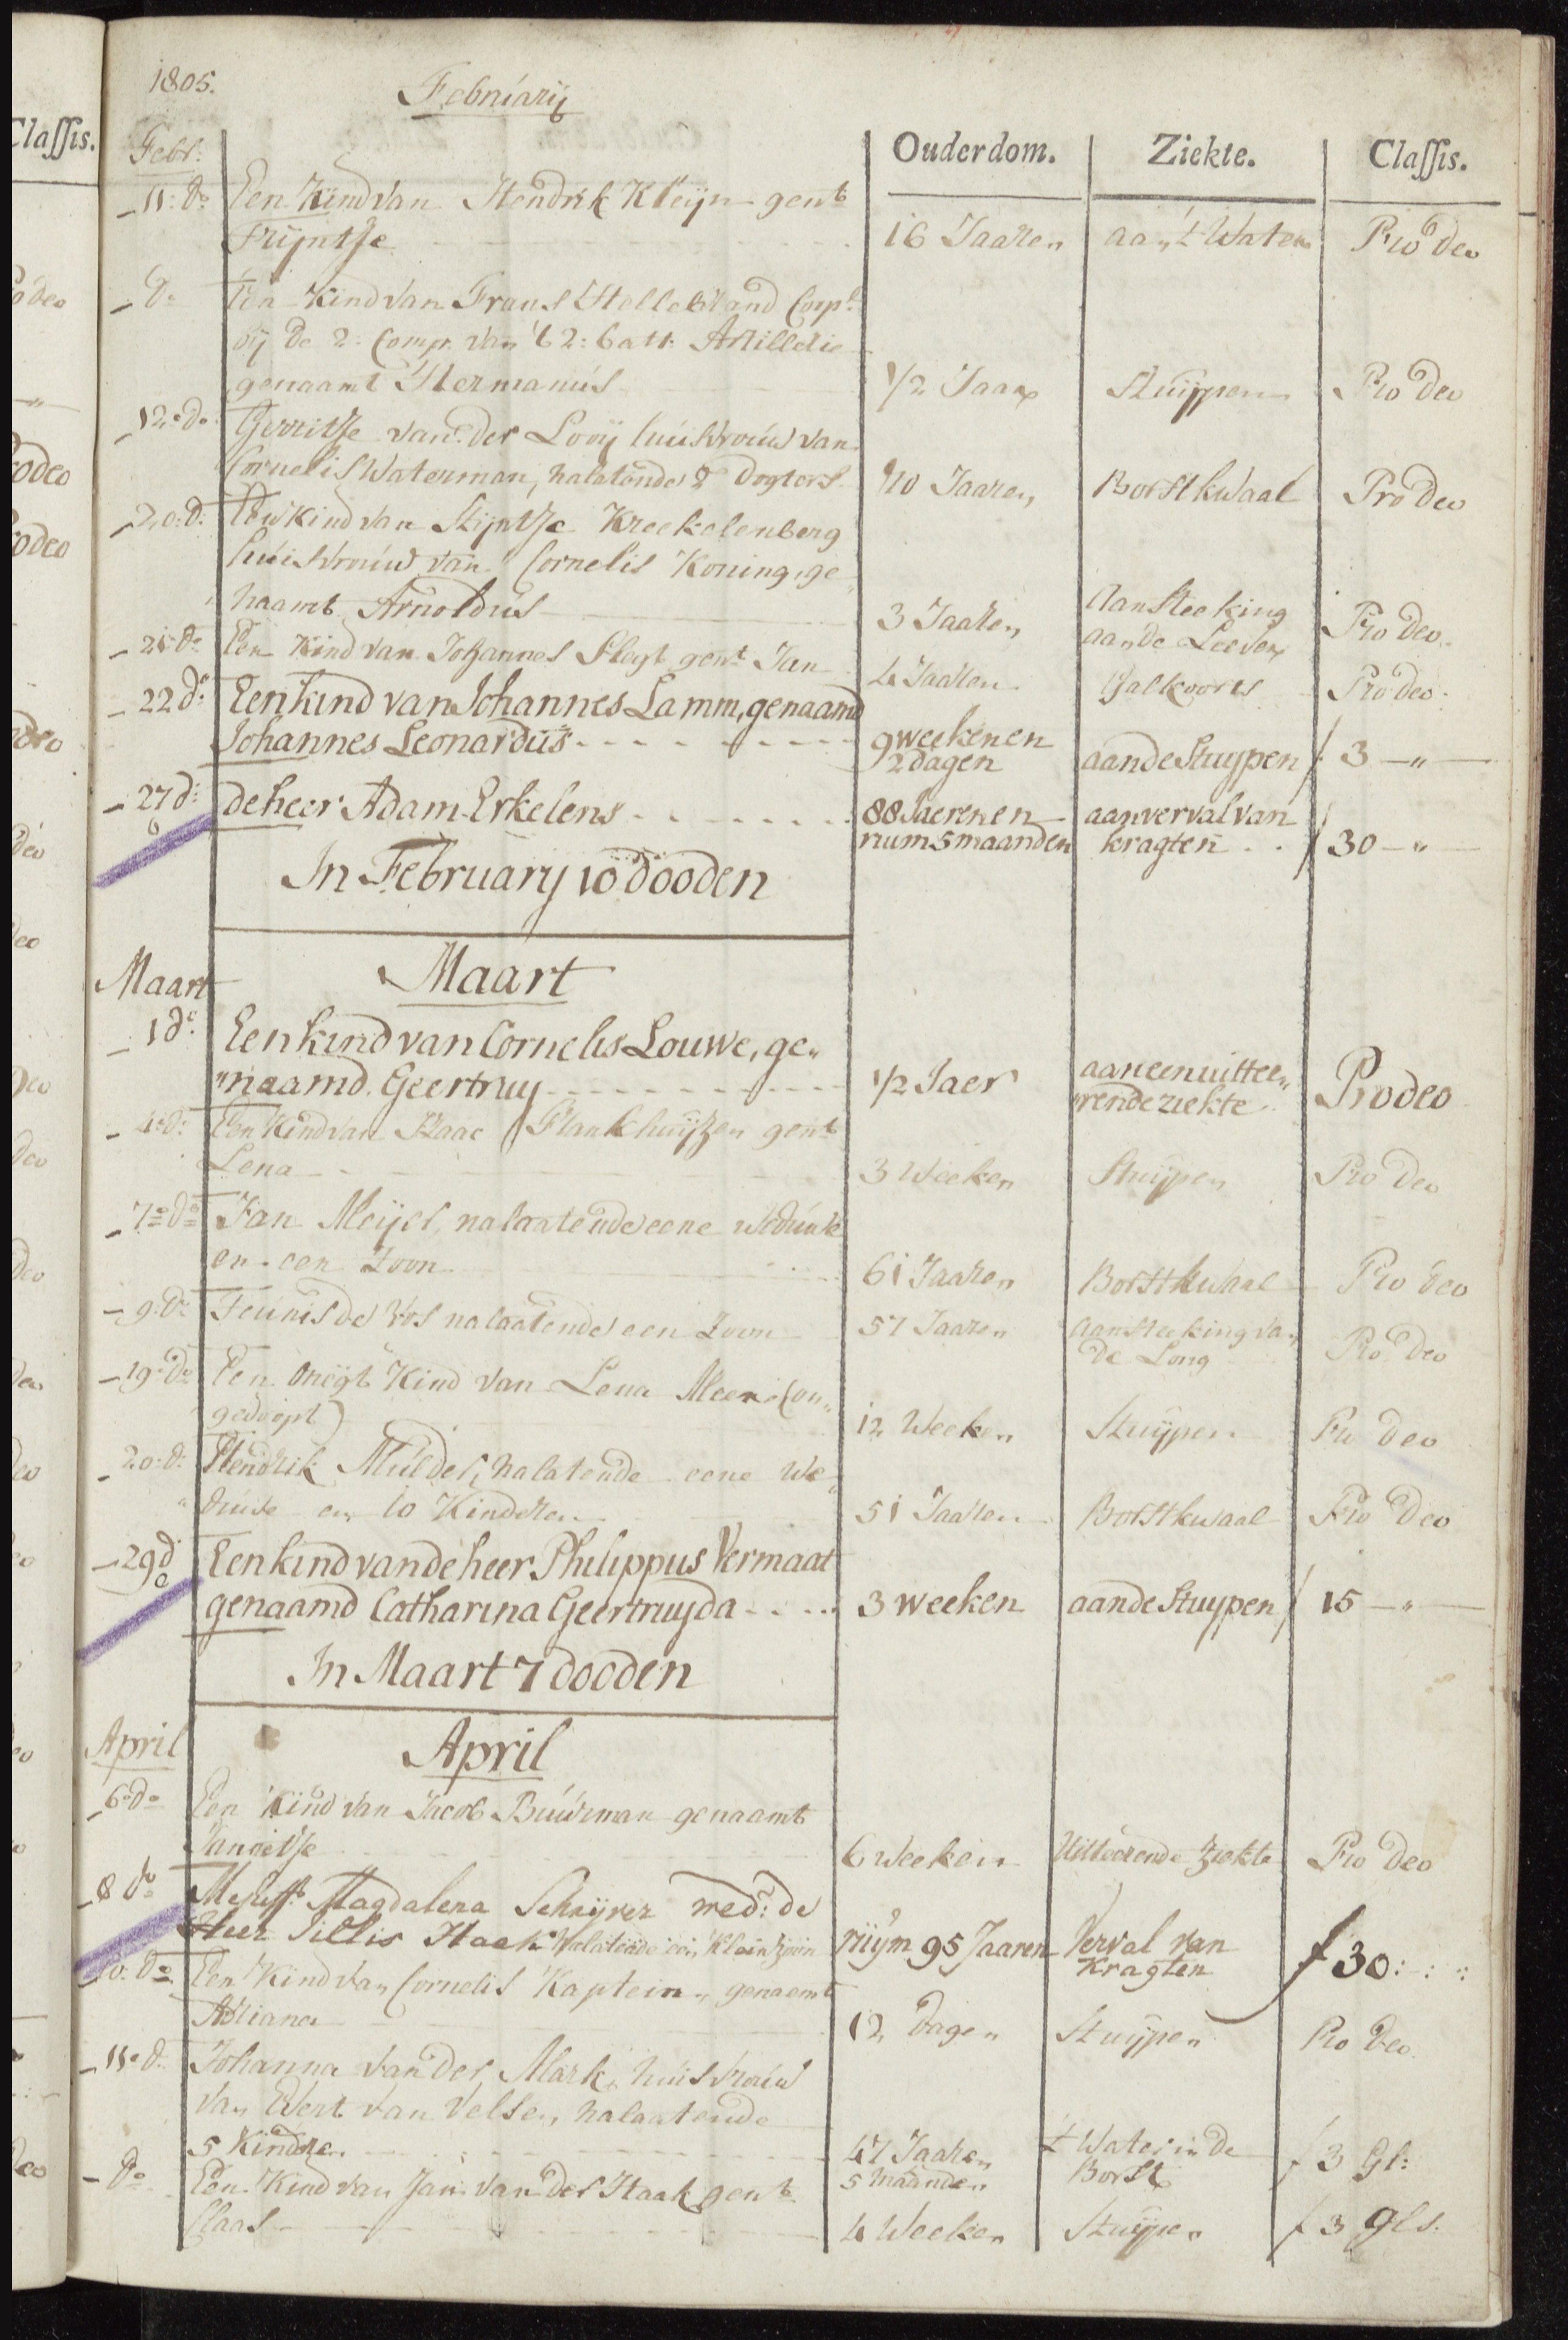 1805.
Februarij
Classis.
Febr:
Ouderdom. Ziekte. Classis.
11: do Een Kind van Hendrik Kleijn gent
Trijntje 16 Jaaren aan 't Water Pro Deo
do Een Kind van Frans Hellebrand Corpl
bij de 2: Comp. van 't 2: Batt: Artillerie
genaamt Hermanus 1/2 Jaar Stuijpen Pro Deo
12: do Gerritje van der Looij huisvrouw van
Cornelis Waterman, nalatende 2 Dogters 70 Jaaren Borstkwaal Pro Deo
20: d: Een Kind van Stijntje Kreekelenberg
huisvrouw van Cornelis Koning, ge
naamt Arnoldus 3 Jaaren Aansteeking
aan de Leever Pro Deo
21: do Een Kind van Johannes Slegt gent Jan 4 Jaaren Galkoorts Pro deo
22 d: Een kind van Johannes Lamm, genaamd
Johannes Leonardus 9 weeken en
2 dagen aan de Stuypen f 3 —"—
27 d: de heer Adam Erkelens 88 Jaeren en
ruim 5 maanden aan verval van
kragten f 30 —"—
In February 10 dooden
Maart
Maart
1 d: Een kind van Cornelis Louwe, ge"
"naamd Geertruy 1/2 Jaer aan een uittee"
"rende ziekte Pro deo
4: d: Een Kind van Isaac Plankhuijzen gent
Lena 3 Weeken Stuijpen Pro Deo
7: do Jan Meijer, nalaatende eene Weduwe
en een Zoon 61 Jaaren Borstkwaal Pro deo
9: do Teunis de Vos nalaatende een Zoon 57 Jaaren Aansteeking van
de Long Pro Deo
19: do Een onegt Kind van Lena Meer (on"
gedoopt) 12 Weeken Stuijpen Pro deo
20: d: Hendrik Mulder, nalatende eene We"
"duwe en 10 Kinderen 51 Jaaren Borstkwaal Pro Deo
29 d Een kind van de heer Philippus Vermaat
genaamd Catharina Geertruyda 3 weeken aan de Stuypen f 15 —"—
In Maart 7 dooden
April
April
6: do Een Kind van Jacob Buurman genaamt
Jannetje 6 Weeken Uitteerende Ziekte Pro Deo
8 do Mejuffr. Magdalena Schrijver wed: de
Heer Jillis Haek nalatende een Kleinzoon ruijm 95 Jaaren Verval van
Kragten f 30:-:-:
10: do Een Kind van Cornelis Kaptein, genaemt
Adriana 12 Dagen Stuijpen Pro Deo
11: d: Johanna van der Mark, huisvrouw
van Evert van Velsen, nalaatende
5 Kindre. 47 Jaaren
5 maanden 't Water in de
Borst f 3 Gl:
do Een Kind van Jan van der Haak gent
Claas 4 Weeken Stuijpen f 3 gls.